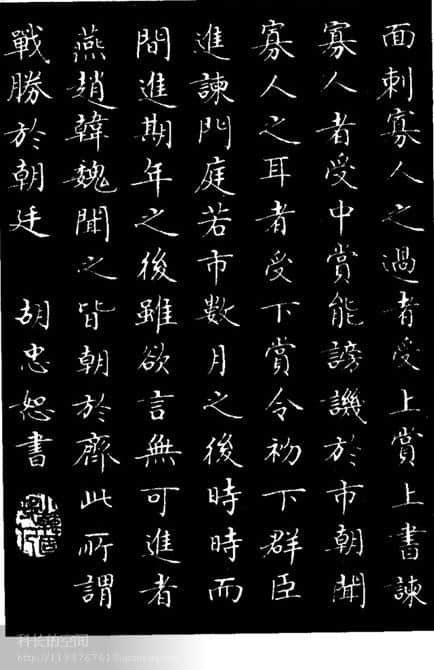 面刺寡人之過者受上賞上書諫
寡人者受中賞能謗譏於市朝聞
寡人之耳者受下賞令初下群臣
進諫門庭若市數月之後時時而
間進期年之後雖欲言無可進者
燕趙韓魏聞之皆朝於齊此所謂
戰勝於朝廷 胡忠恕書
科长的空间